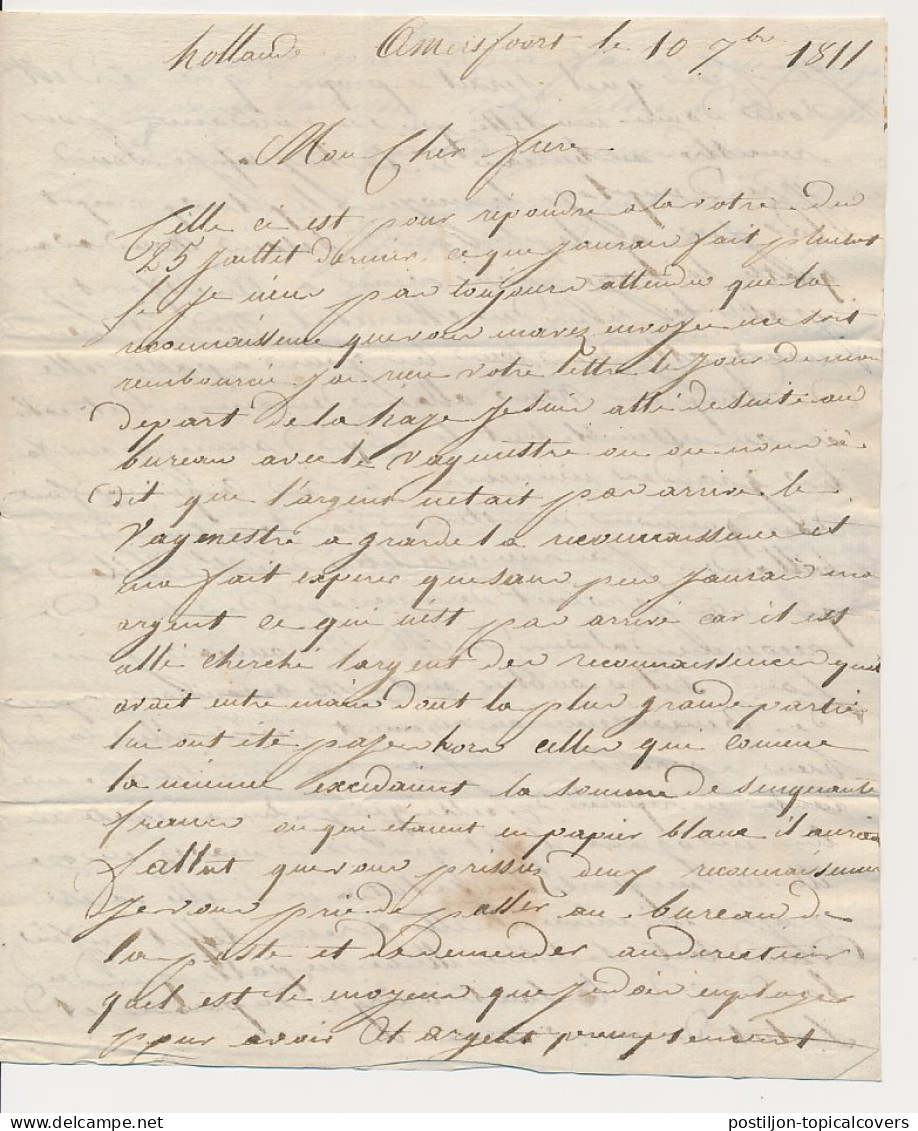 hollande Amersfoort le 10 7bre 1811
Mon Cher frere
Celle ci est pour repondre a la votre du
25 juillet dernier ce que jaurais fait plutot
se je neus pas toujours attendu que la
reconnaissence que vous mavez envoyée me soit
remboursée jai reeu votre lettre le jour de mon
depart de la haje je suis allé de suite au
bureau avec le vagmestre ou on nous à
dit que l'argent netait pas arrivé le
Vagmestre a gardé la reconnaissence et
ma fait esperer que sous peu jaurais mon
argent ce qui n'est pas arrivé car il est
allé cherché largent des reconnaissences quil
avait entre mains dont la plus grande partie
lui ont été pajées hors celles qui comme
la mienne excedaient la somme de sinquante
francs ou qui étaient en papier blanc il aurait
fallut que vous prissiez deux reconnaissences
je vous prie de passer au bureau de
la poste et de demender au directeur
quel est le moyens que je dois emploger
pour avoir cet argent promptement
postiljon-topicalcovers